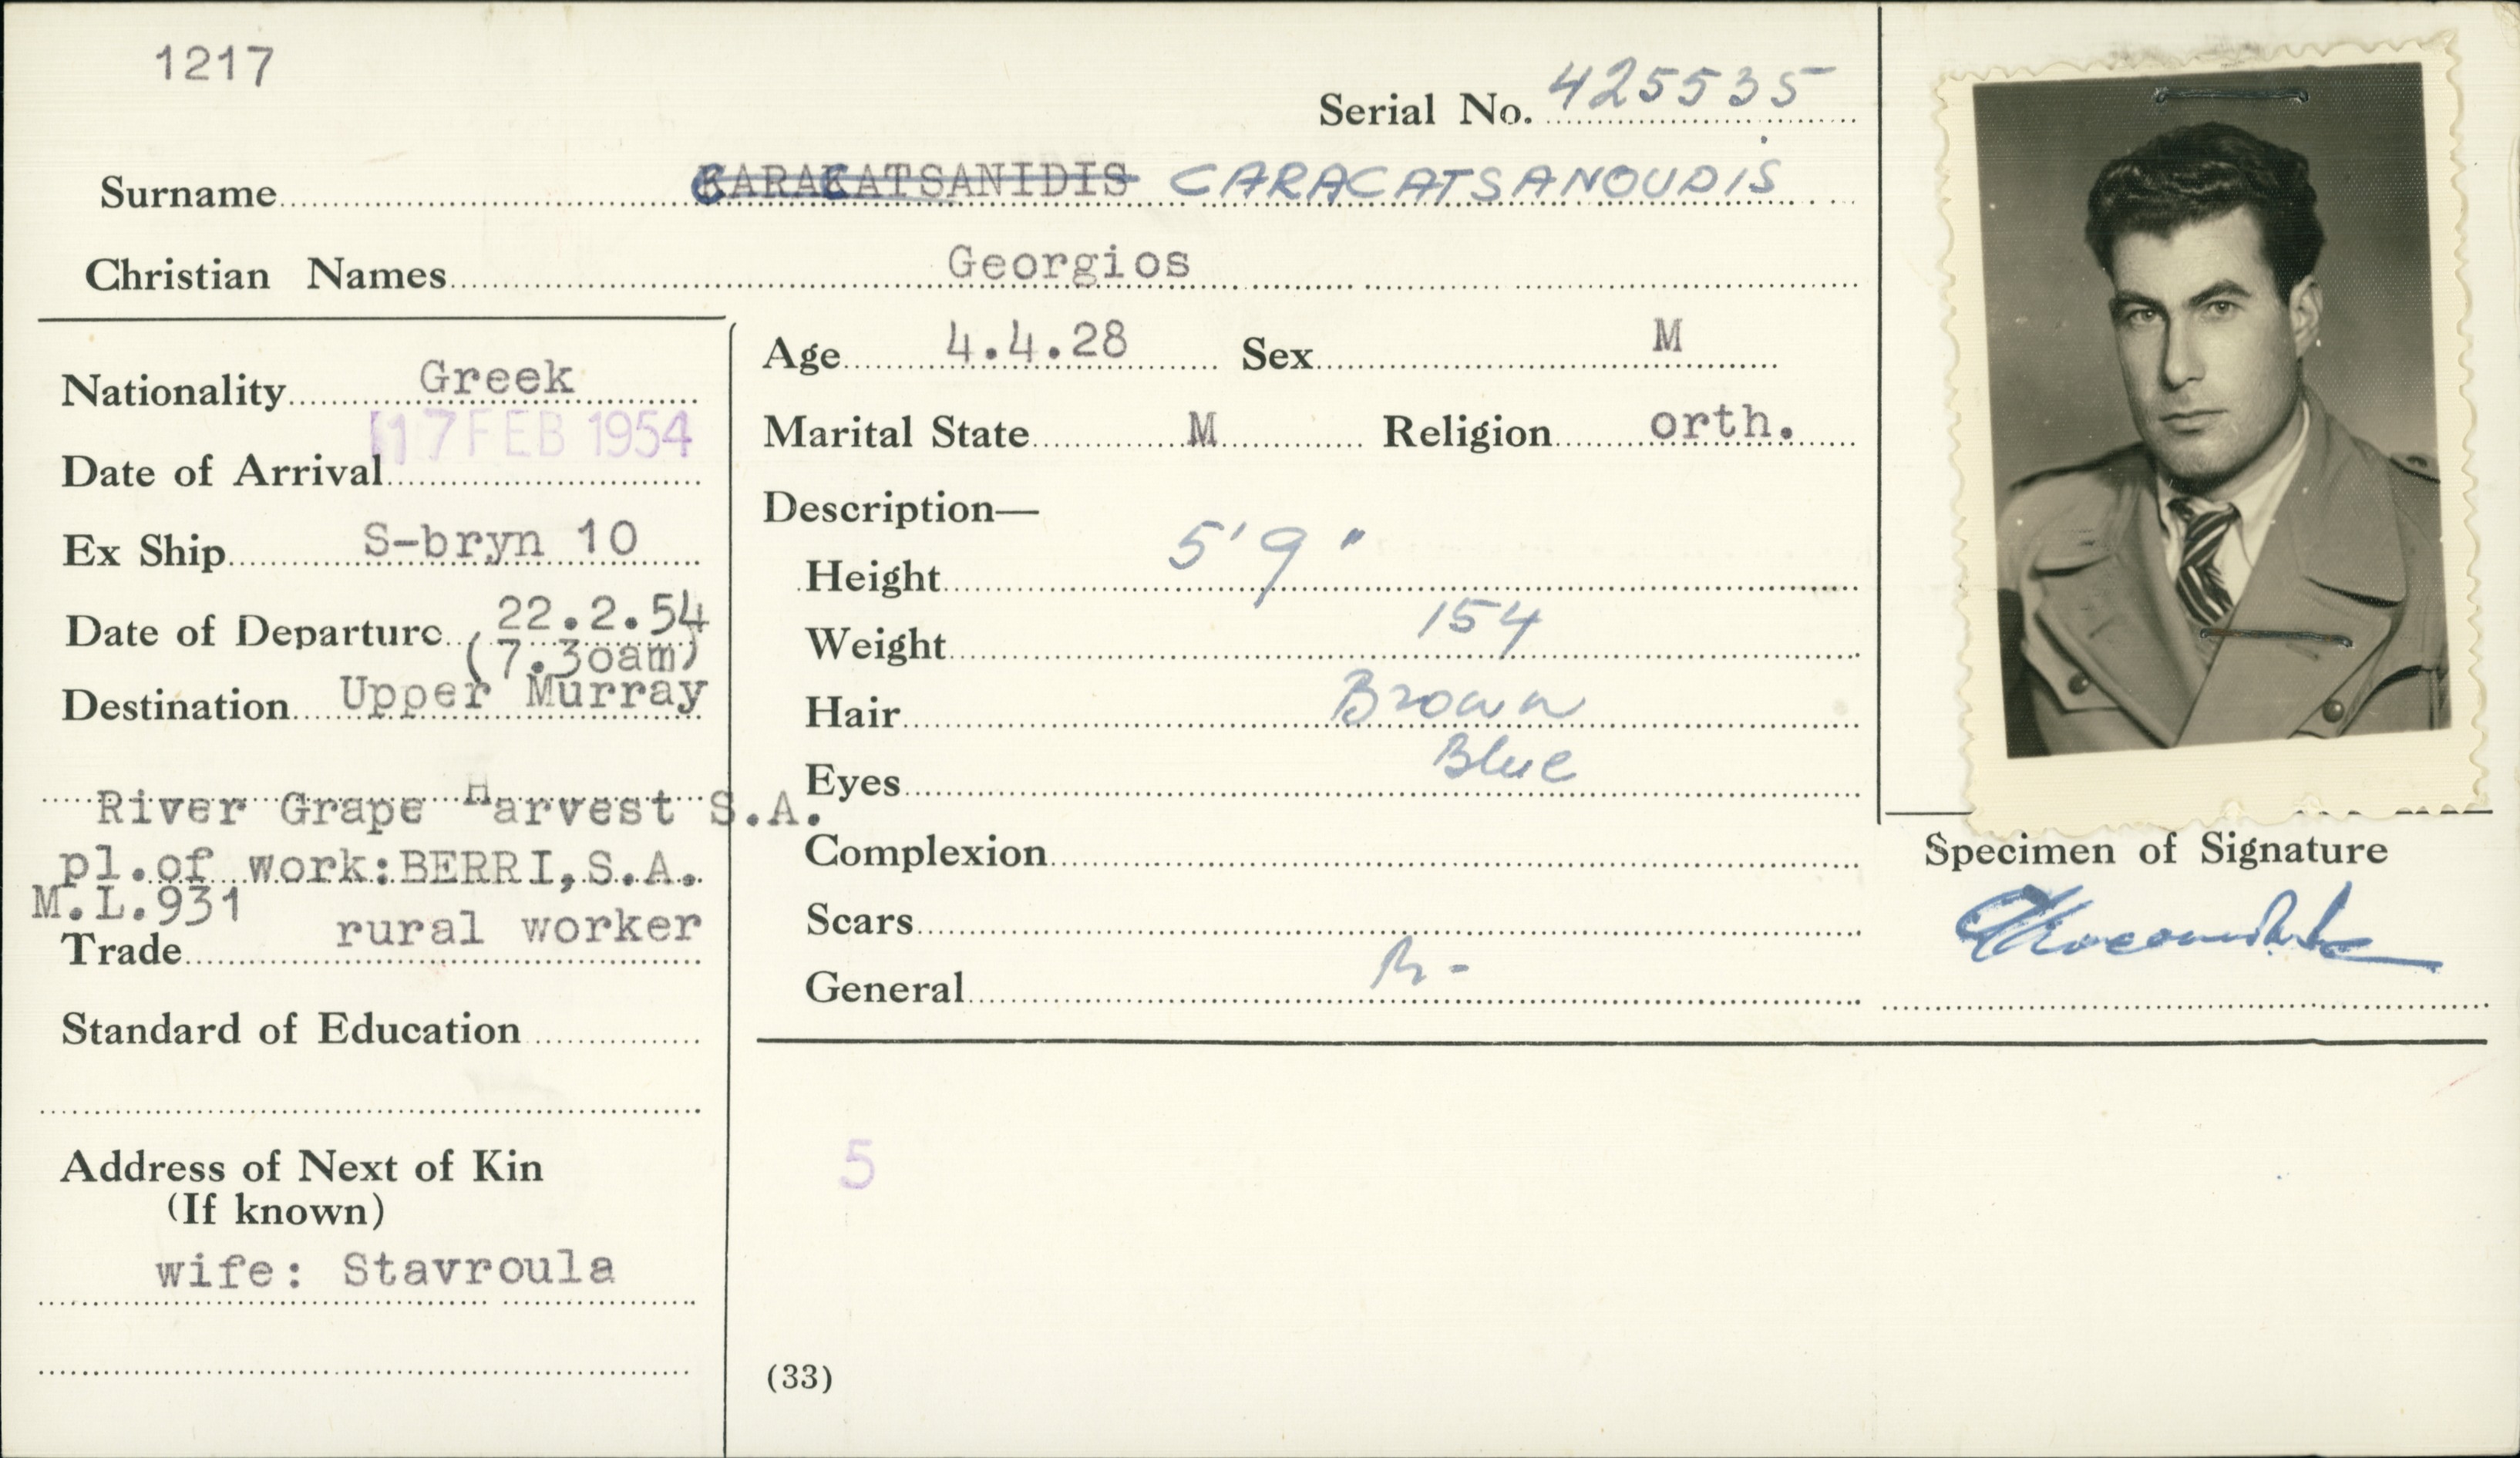 1217
Serial No. 425535
Surname KARAKATSANIDIS CARACATSANOUDIS
Christian Names Georgios
Nationality Greek
Date of Arrival 17 FEB 1954
Ex Ship S-bryn 10
Date of Departure 22.2.54
(7.30am)
Destination Upper Murray
River Grape Harvest S.A.
pl.of work:BERRI,S.A.
M.L.931
Trade rural worker
Standard of Education
Address of Next of Kin
(If known)
wife: Stavroula
Age 4.4.28 Sex M
Marital State M Religion orth.
Description—
Height 5'9"
Weight 154
Hair Brown
Eyes Blue
Complexion
Scars
General
5
(33)
Specimen of Signature